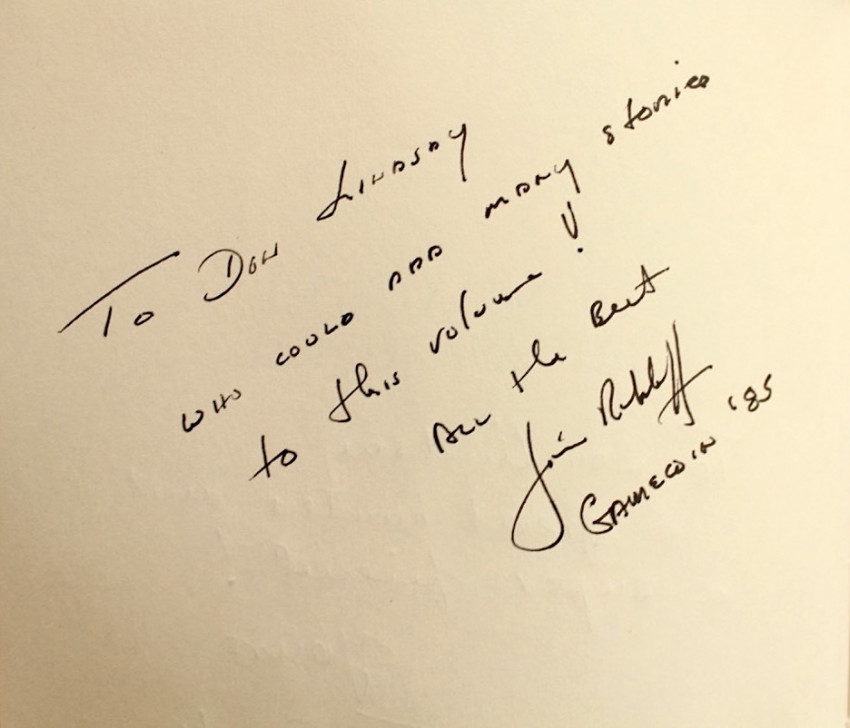 To Don Lindsay
who could add many stories
to this volume!
All the Best
Jim
GAMECOIN '85